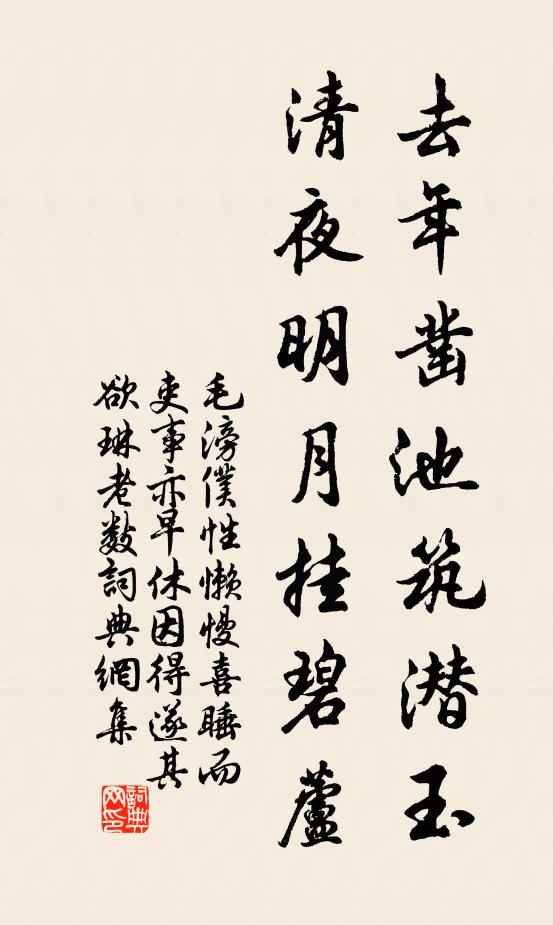 去年凿池筑潜玉
清夜明月挂碧蘆
毛滂僕性懒慢喜睡而
吏事亦早休因得遂其
欲琳老数詞典網集
詞典网印